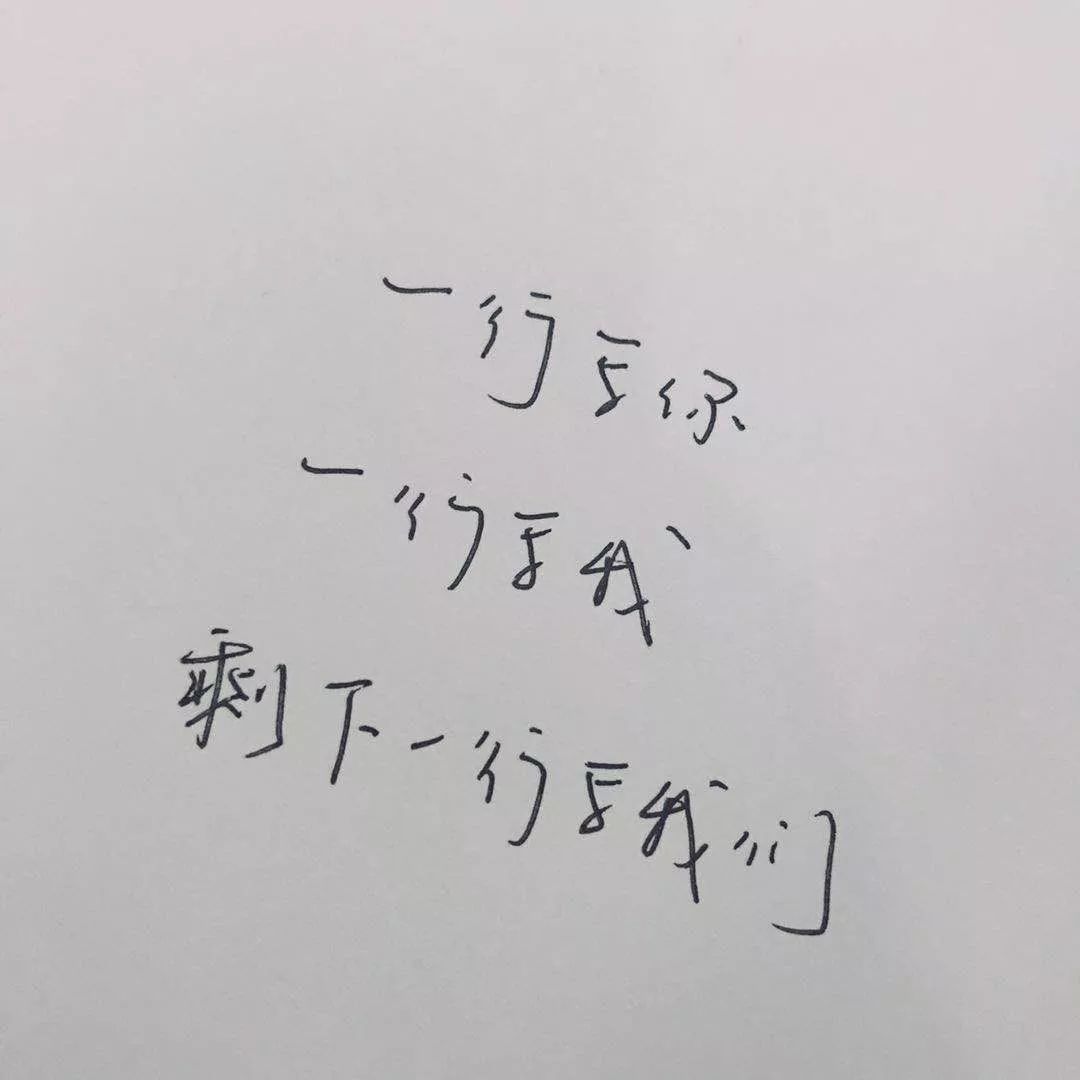 一行写你
一行写我
剩下一行写我们